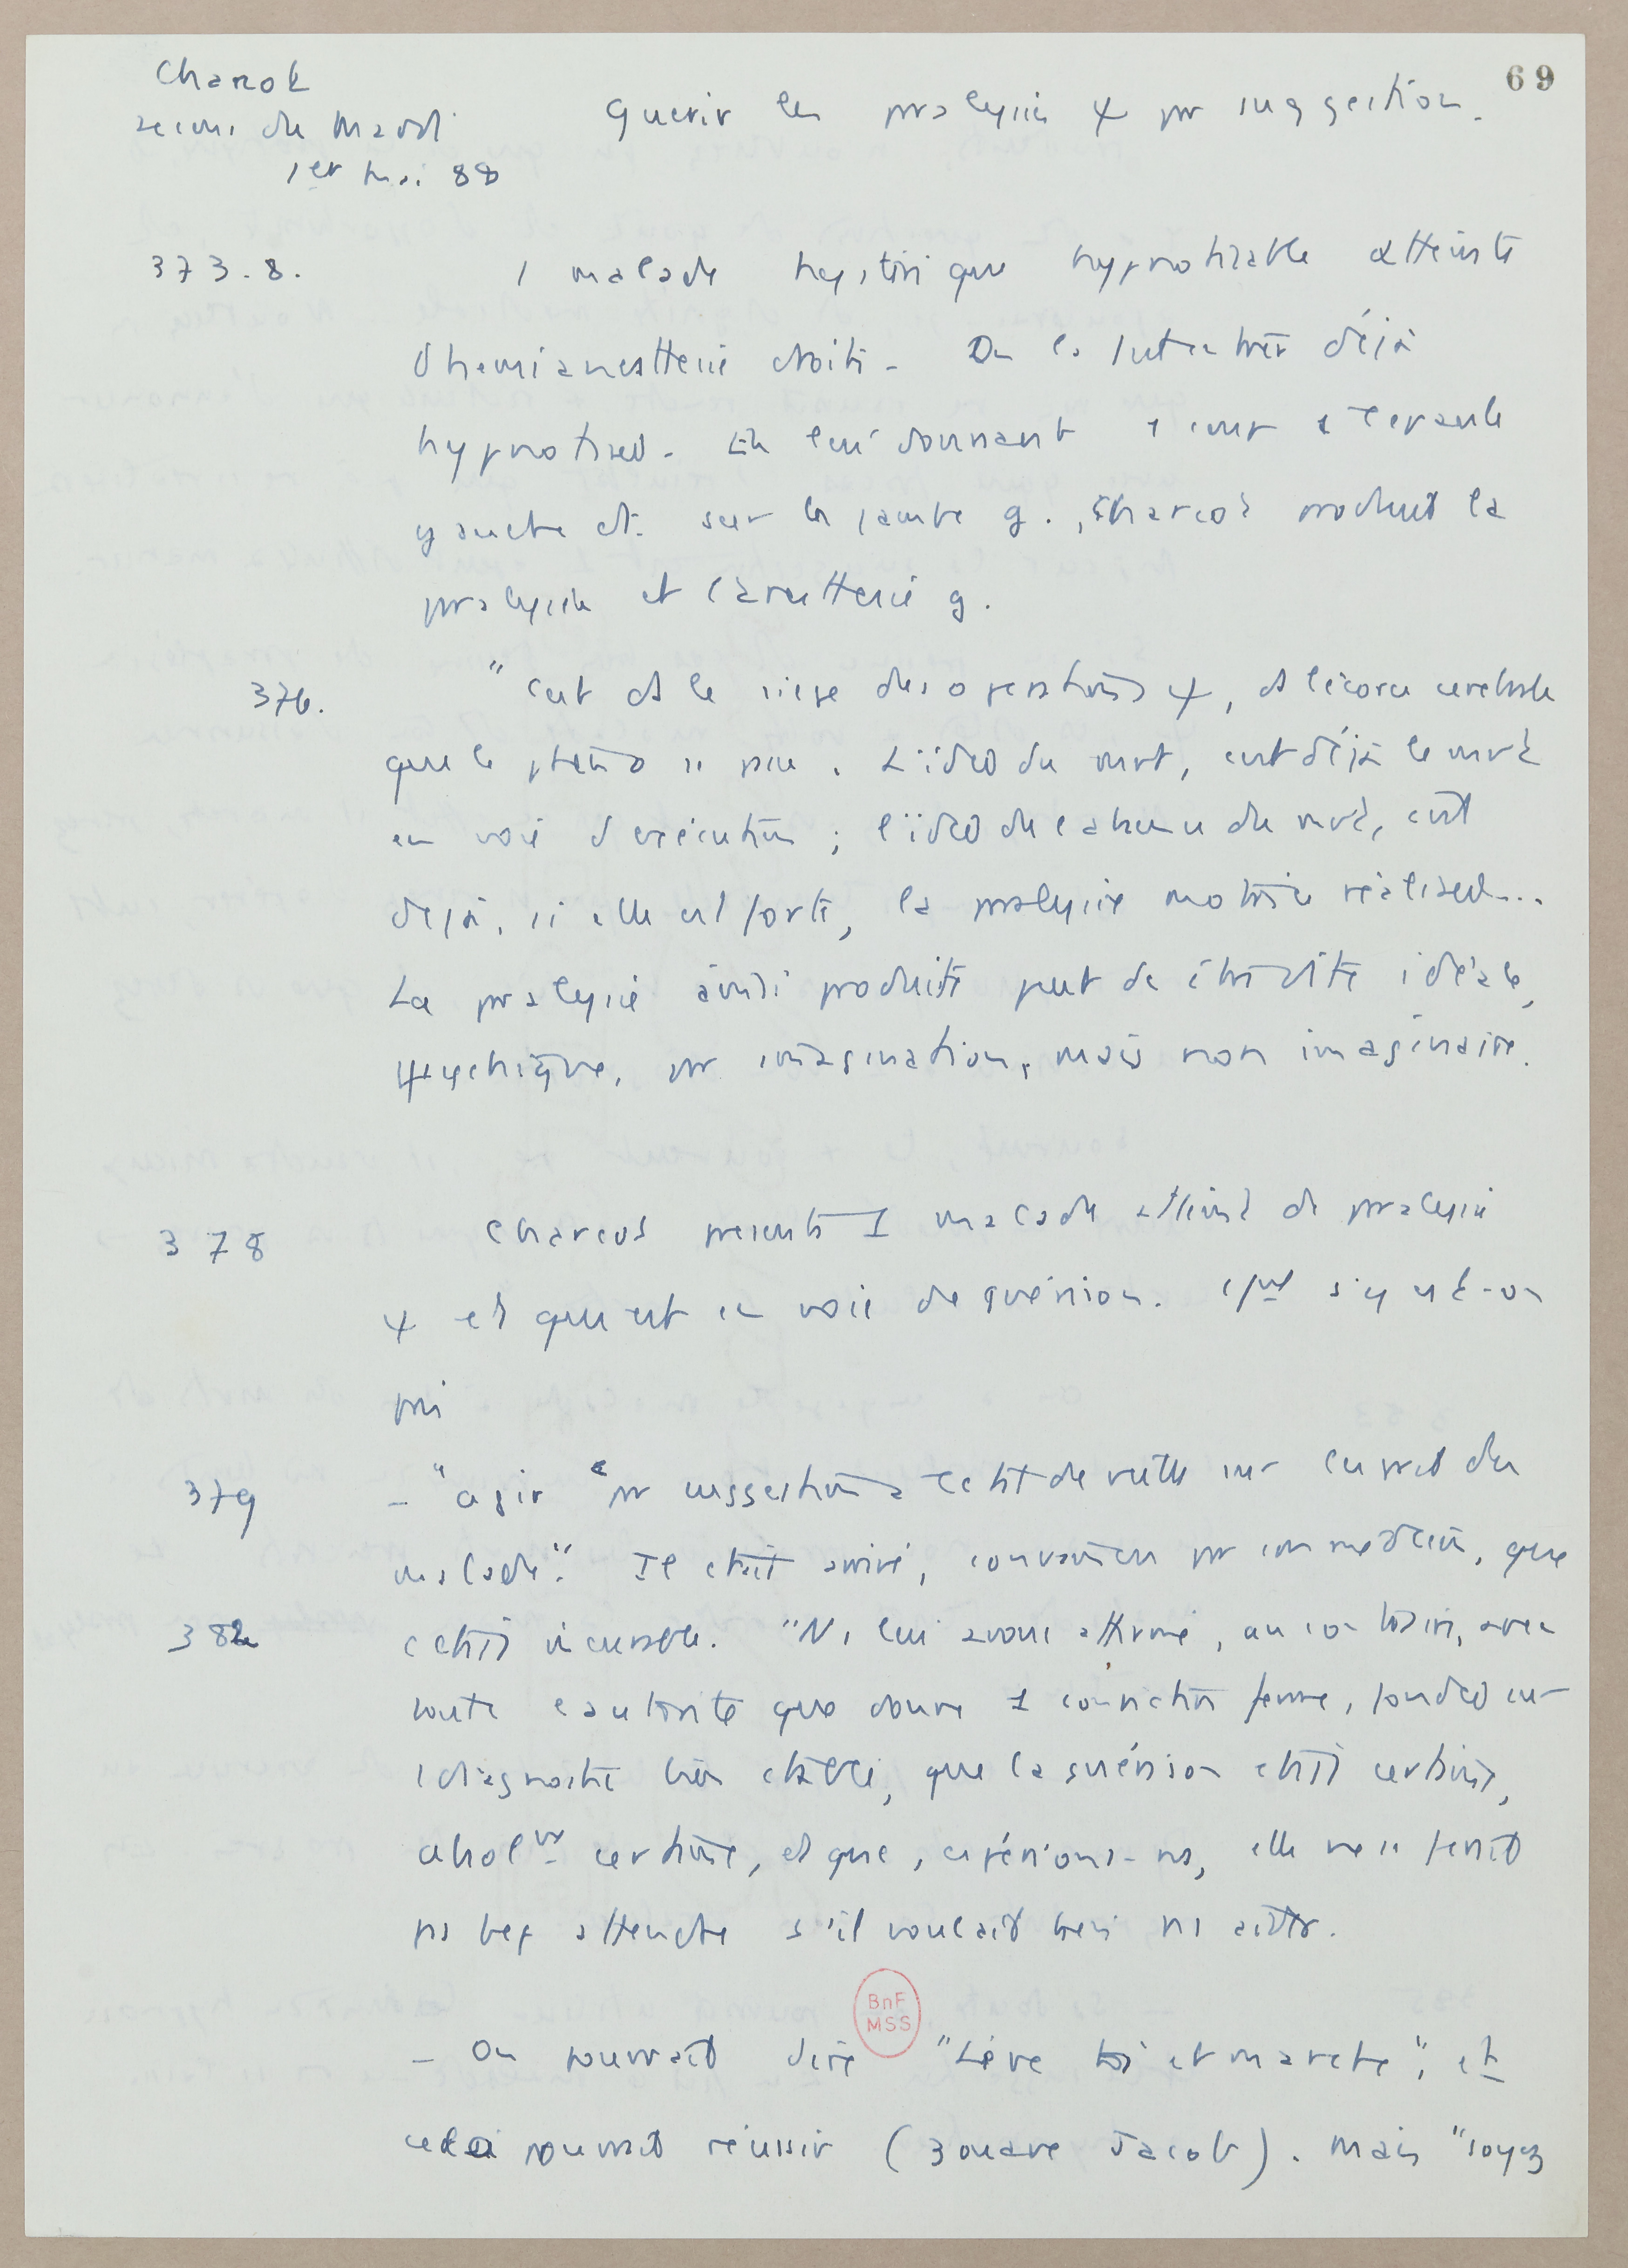 69
Charcot
Leçons du Mardi
1er mai 88
Guérir les paralysies ψ par suggestion.
373.8. 1 malade hystérique hypnotisable atteinte
d'hémianesthésie droite. On la
hypnotisée. En lui donnant 1 coup à l'épaule
gauche et sur la jambe g., Charcot produit la
paralysie et l'anesthésie g.
376. "C'est ds le siège des opérations ψ, ds l'écorce cérébrale
que le phéno se passe. L'idée du mvt, c'est déjà le mvt
en voie d'exécution ; l'idée de l'absence du mvt, c'est
déjà, si elle est forte, la paralysie motrice réalisée...
La paralysie ainsi produite peut dc être dite idéale,
psychique, par imagination, mais non imaginaire.
378 Charcot présente 1 malade atteint de paralysie
ψ et qui est en voie de guérison. Cment s'y est-on
pris
379 - "agir par suggestion à l'état de veille sur l'esprit du
malade". Il était arrivé, convaincu par son médecin, que
382 c'était incurable. "Ns lui avons affirmé, au contraire, avec
toute l'autorité que donne 1 conviction ferme, fondée sur
1 diagnostic bien établi, que la guérison était certaine,
absolmt certaine, et que, espérions-ns, elle ne se ferait
pas bcp attendre s'il voulait bien ns aider.
- On pourrait dire "Lève toi et marche", et
cela pourrait réussir (Zouave Jacob). Mais "soyez
BnF
MSS